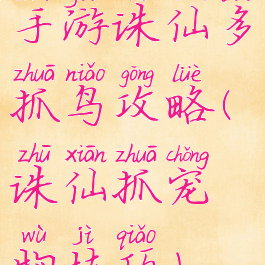 手游诛仙多
zhuā niǎo gōng lüè
抓鸟攻略(
zhū xiān zhuā chǒng
诛仙抓宠
wù jì qiǎo
物技巧)